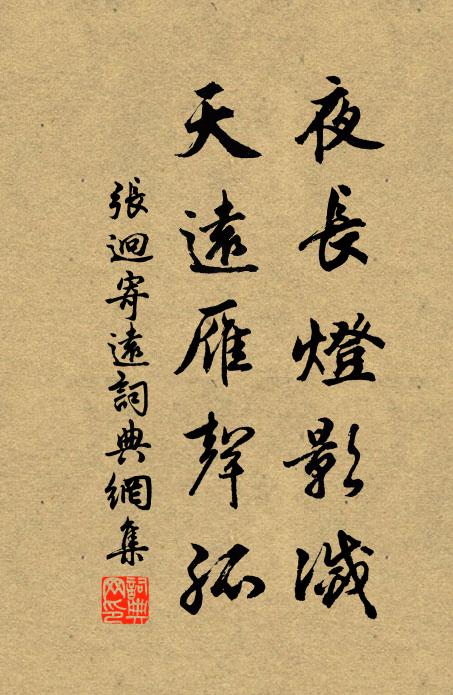 夜長燈影滅
天遠雁聲孤
張迥寄遠詞典網集
詞典网印